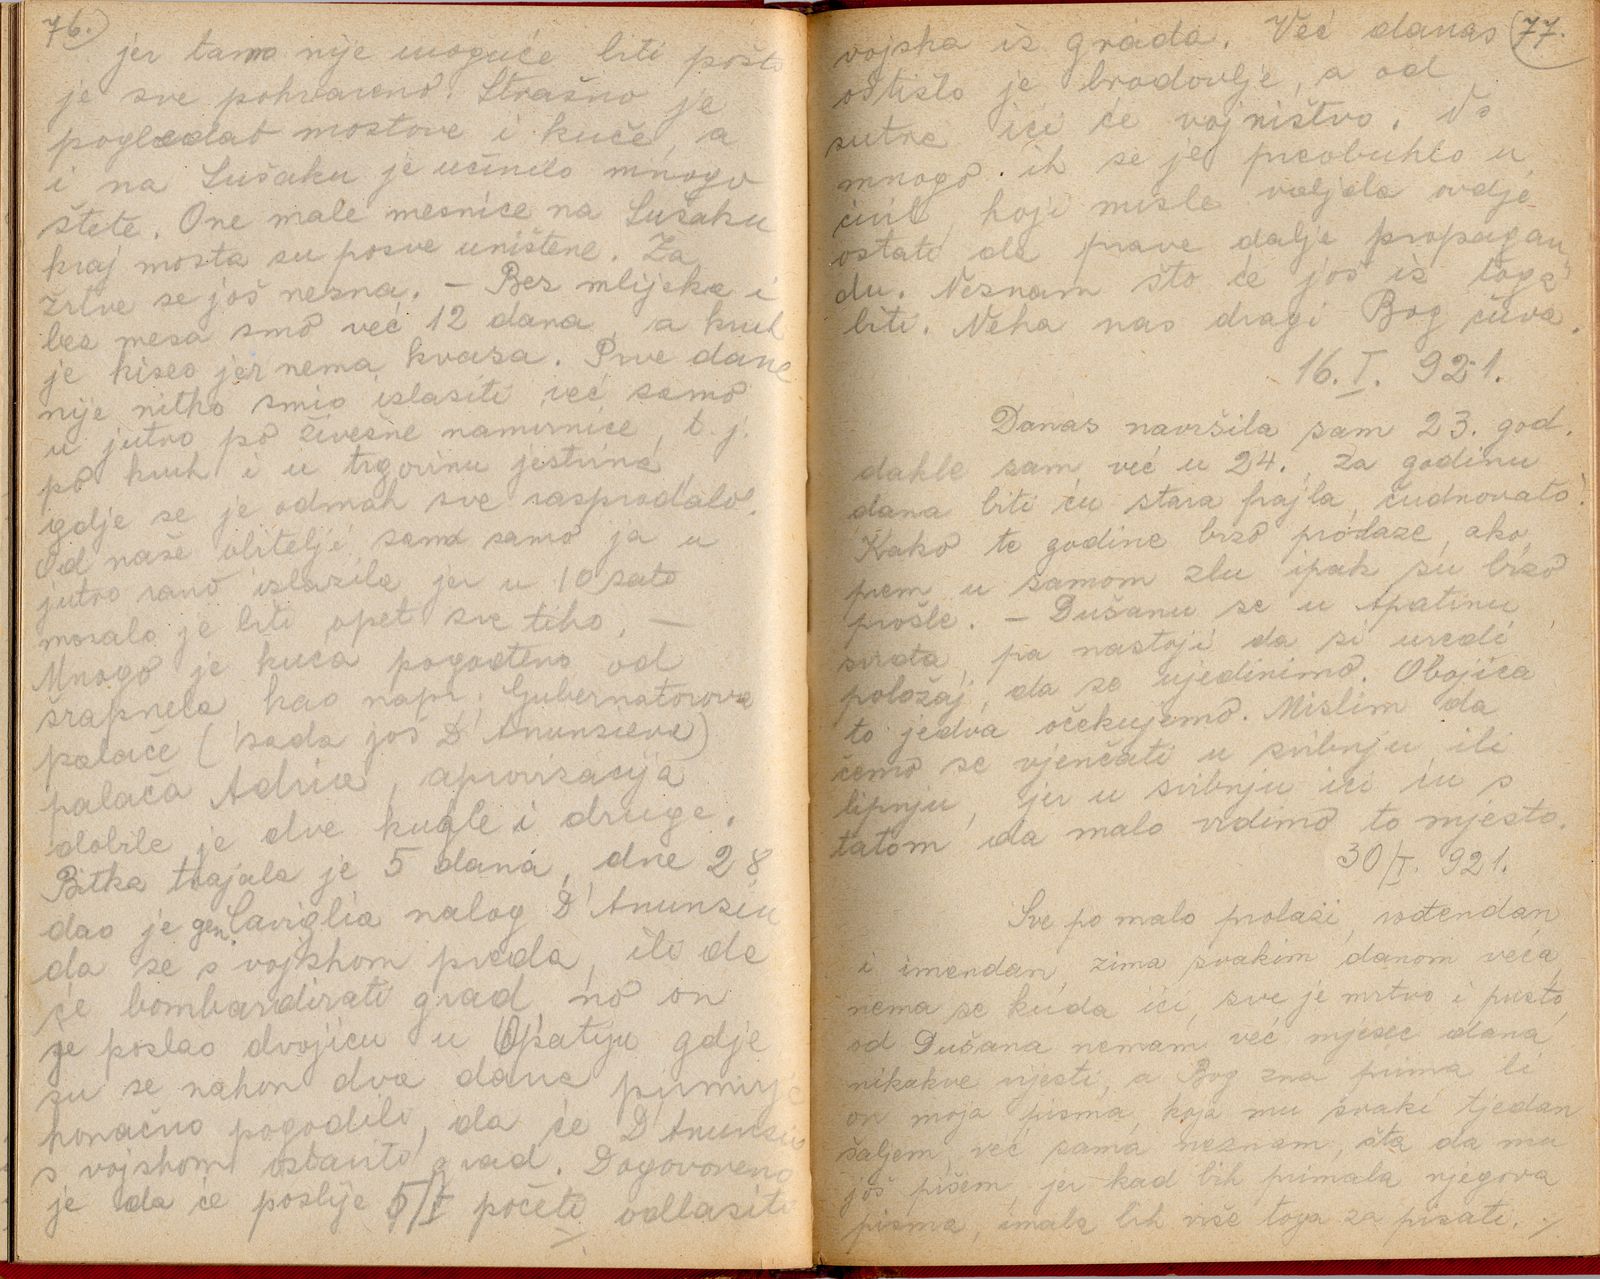 76.)
jer tamo nije moguće biti pošto
je sve pokvareno. Strašno je
pogledat mostove i kuće, a
i na Sušaku je učinilo mnogo
štete. One male mesnice na Sušaku
kraj mosta su posve uništene. Za
žrtve se još nezna. – Bez mlijeka i
bez mesa smo već 12 dana, a kruh
je kiseo jer nema kvasa. Prve dane
nije nitko smio izlaziti već samo
u jutro po živežne namirnice, t. j.
po kruh i u trgovinu jestvina
gdje se je odmah sve rasprodalo.
Od naše obitelji sam samo ja u
jutro rano izlazila jer u 10 sati
moralo je biti opet sve tiho. —
Mnogo je kuća pogođeno od
šrapnela kao napr. Gubernatorova
palače (sada još D'Anunzieva)
palača Adria, aprovizacija
dobile je dve kugle i druge.
Bitka trajala je 5 dana, dne 28
dao je gen. Caviglia nalog D'Anunziu
da se s vojskom preda, ili da
će bombardirati grad, no on
je poslao dvojicu u Opatiju gdje
su se nakon dva dana primirja
konačno pogodili, da će D'Anunzio
s vojskom ostaviti grad. Dogovoreno
je da će poslije 5/I početi odllaziti
(77.
vojska iz grada. Već danas
otišlo je brodovlje, a od
sutra ići će vojništvo. No
mnogo ih se je preobuklo u
civil, koji misle valjda ovdje
ostati da prave dalje propagan
du. Neznam što će još iz toga
biti. Neka nas dragi Bog čuva.
16. I. 921.
Danas navršila sam 23. god.
dakle sam već u 24. Za godinu
dana biti ću stara frajla, čudnovato!
Kako te godine brzo prolaze, ako
prem u samom zlu ipak su brzo
prošle. – Dušanu se u Apatinu
sviđa, pa nastoji da si uredi
položaj, da se ujedinimo. Obojica
to jedva očekujemo. Mislim da
ćemo se vjenčati u svibnju ili
lipnju, jer u svibnju ići ću s
tatom da malo vidimo to mjesto.
30/I. 921.
Sve po malo prolazi, rođendan
i imendan, zima svakim danom veća,
nema se kuda ići, sve je mrtvo i pusto,
od Dušana nemam već mjesec dana
nikakve vjesti, a Bog zna prima li
on moja pisma, koja mu svaki tjedan
šaljem, već sama neznam, šta da mu
još pišem, jer kad bih primala njegova
pisma, imala bih više toga za pisati. ./